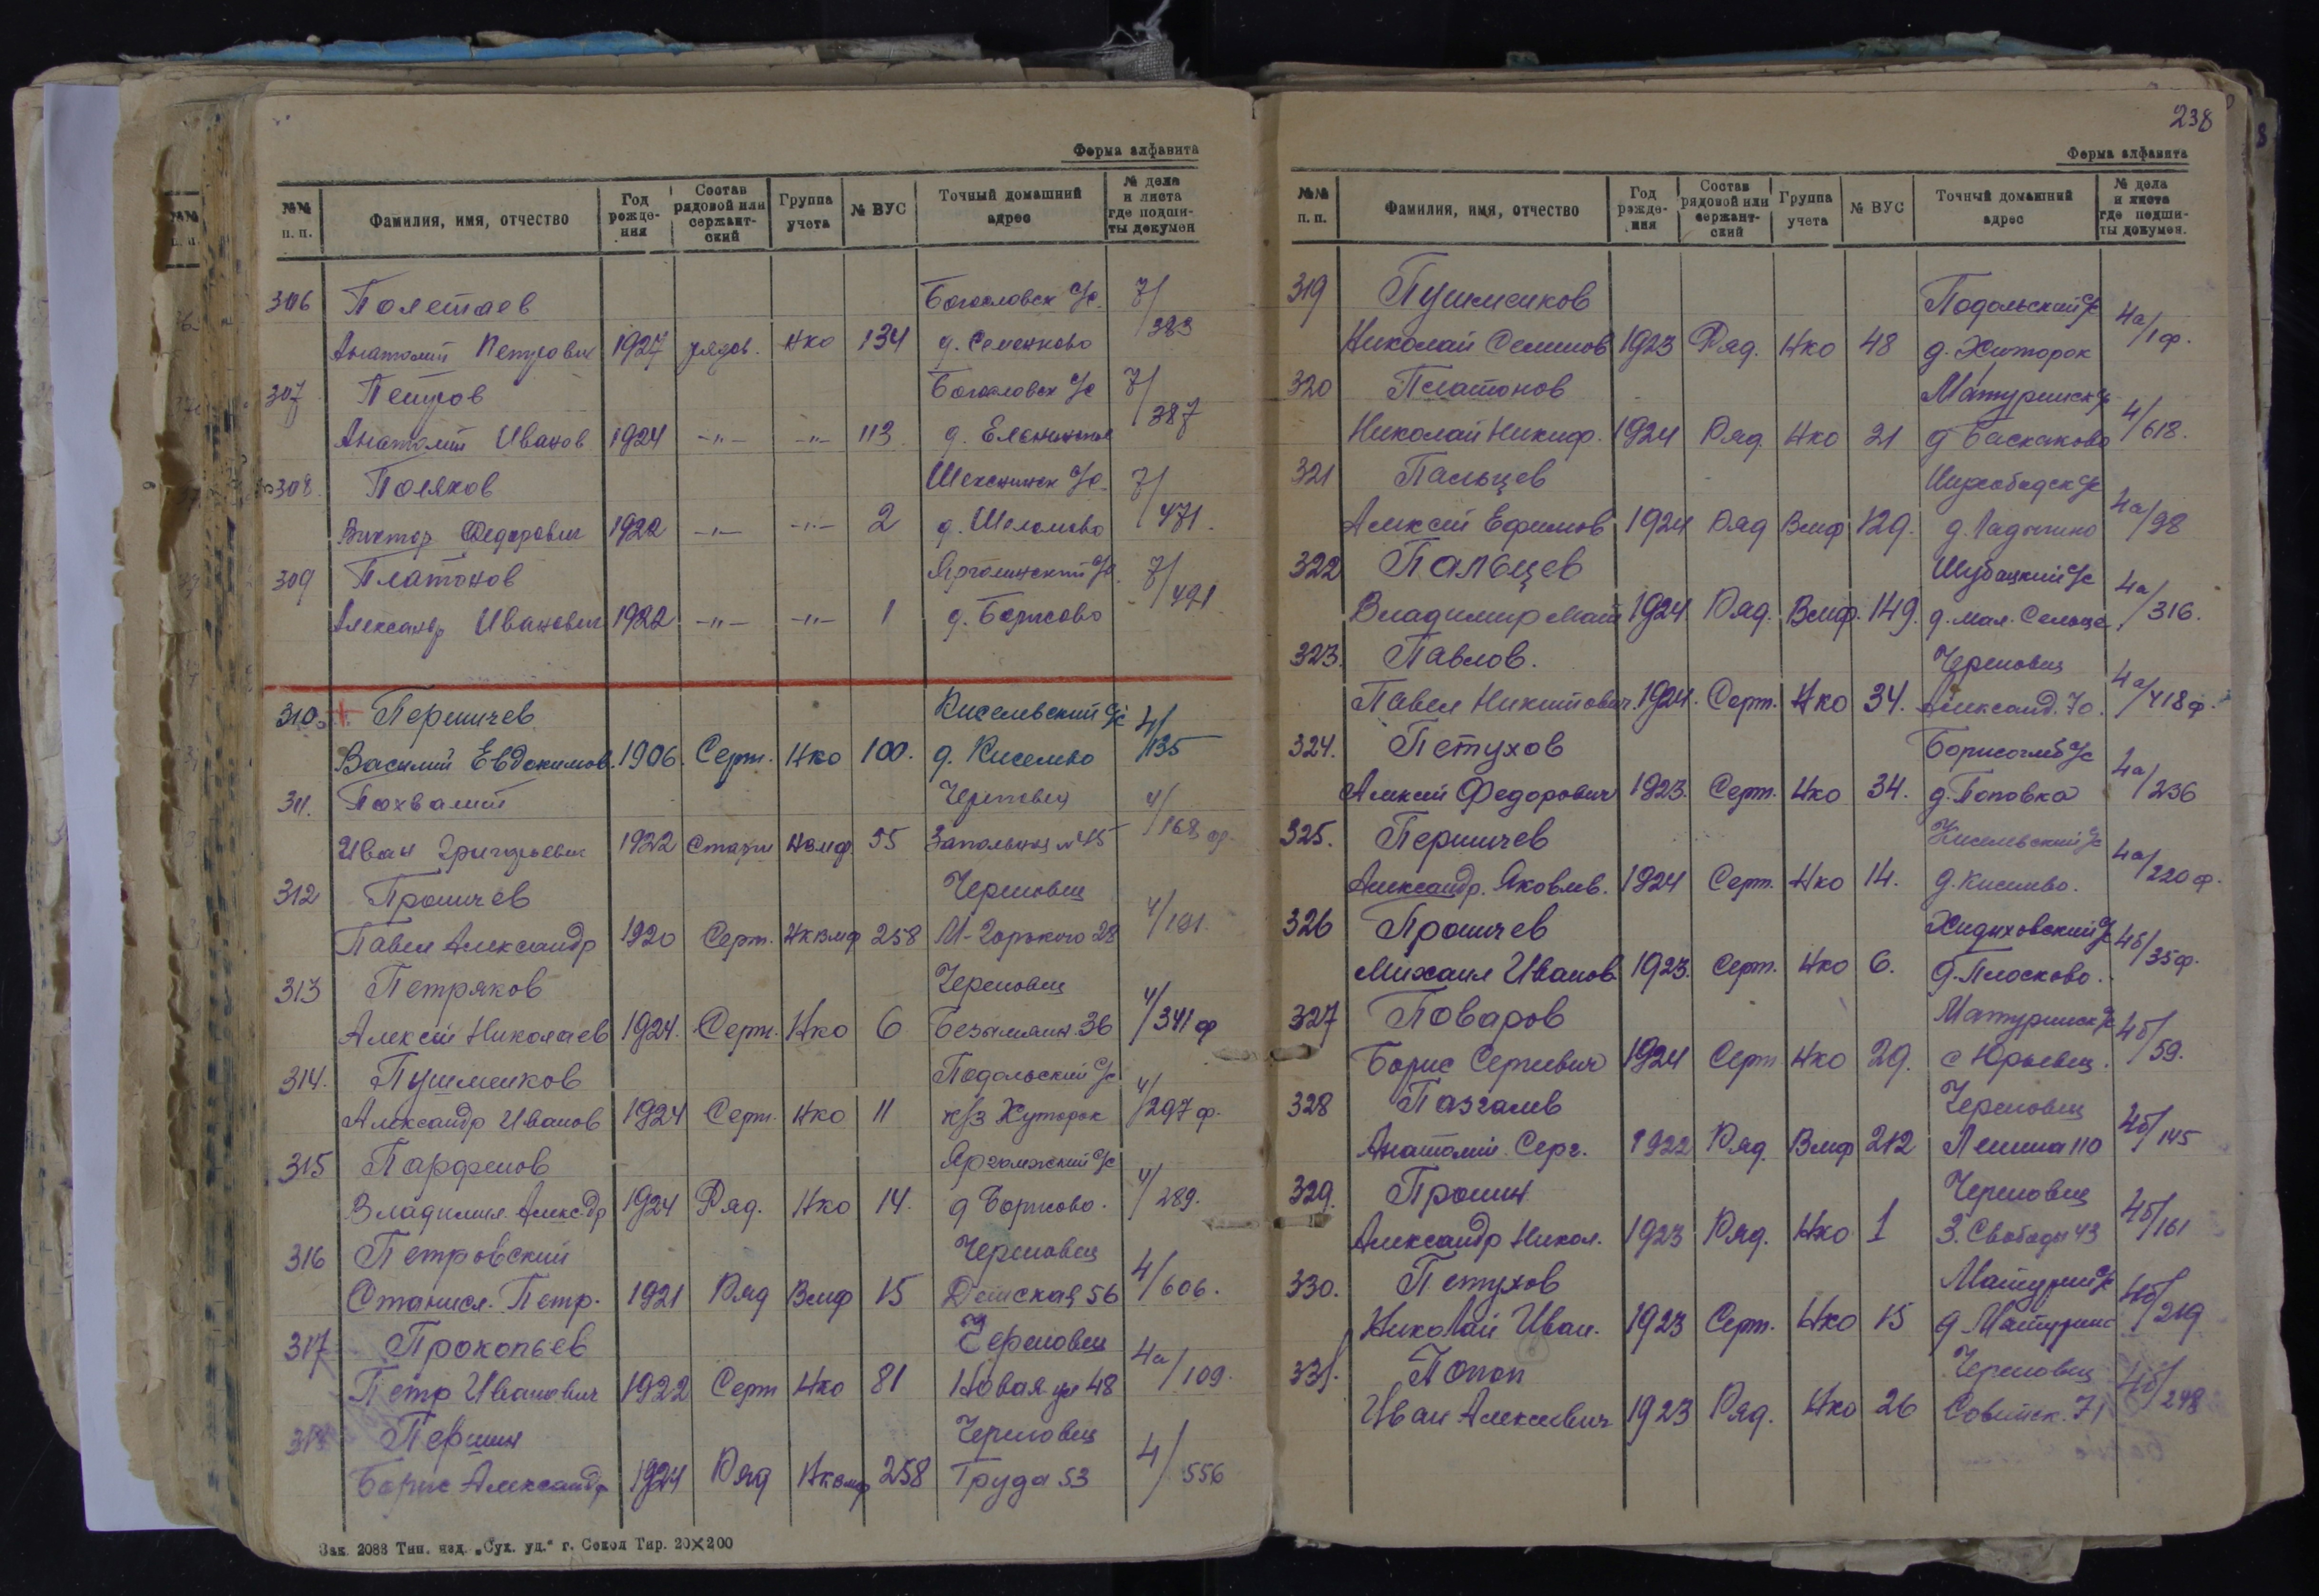 Форма алфавита
№№ п. п. Фамилия, имя, отчество Год рожде-ния Состав рядовой или сержант-ский Группа учета № ВУС Точный домашний адрес № дела и листа где подши-ты докумен
306 Полетаев Богословск с/с. 7/383
Анатолий Петрович 1927 рядов. Нко 134 д. Семенково
307 Петров Богословск с/с 7/387
Анатолий Иванов 1924 -"- -"- 113 д.
308. Поляков Шекснинск с/с. 7/471.
Виктор Федорович 1922 -"- -"- 2 д. Шеломово
309 Платонов 7/491
Александр Иванович 1922 -"- -"- 1 д. Борисово
310. + Першичев Киселевский с/с 4/135
Василий Евдокимов. 1906. Серж. Нко 100. д. Киселево
311. Похвалит Череповец 4/168 ф.
Иван Григорьевич 1922 Нвмф 55 Запольная № 45
312 Проничев Череповец 4/191.
Павел Александр 1920 Серж. Нквмф 258 М-Горького 28
313 Петряков Череповец 4/341 ф
Алексей Николаев 1924. Серж. Нко 6 Безымянн. 36
314. Пушменков Подольский с/с 4/297 ф.
Александр Иванов 1924 Серж. Нко 11 к/з Хуторок
315 Парфенов Ярголжский с/с 4/289.
Владимир. Алекс-др 1924 Ряд. Нко 14. д Борисово.
316 Петровский Череповец 4/606.
Станисл. Петр. 1921 Ряд Вмф 15 Детская 56
317 Прокопьев Череповец 4а/109.
Петр Иванович 1922 Серж Нко 81 Новая ул 48
318 Першин Череповец 4/556
Борис Александр 1924 Ряд Нквмф 258 Труда 53
Зак. 2088 Тип. изд. „Сух. уд." г. Сокол Тир. 20×200
238
Форма алфавита
№№ п. п. Фамилия, имя, отчество Год рожде-ния Состав рядовой или сержант-ский Группа учета № ВУС Точный домашний адрес № дела и листа где подши-ты докумен.
319 Пушменков Подольский с/с 4а/1ф.
Николай Семенов 1923 Ряд. Нко 48 д. Хуторок
320 Платонов Матуринск с/с 4/618.
Николай Никиф. 1924 Ряд. Нко 21 д Баскаково
321 Пальцев 4а/98
Алексей Ефимов 1924 Ряд Вмф 129. д. Ладыгино
322 Пальцев Шубацкий с/с 4а/316.
Владимир Мат 1924. Ряд. Вмф. 149. д. мал. Сельца.
323. Павлов. Череповец 4а/418ф.
Павел Никитович. 1924. Серж. Нко 34. Александ. 70.
324. Петухов Борисоглеб с/с 4а/236
Алексей Федорович 1923. Серж. Нко 34. д. Поповка
325. Першичев Киселевский с/с 4а/220ф.
Александр. Яковлев. 1924 Серж. Нко 14. д. Киселево.
326 Проничев Хидыховский с/с 4б/35ф.
Михаил Иванов 1923. Серж. Нко 6. д. Плосково.
327 Поваров Матуринск с/с 4б/59.
Борис Сергеевич 1924 Серж Нко 29. с Юрьевец.
328 Пазгалев Череповец 4б/145
Анатолий. Серг. 1922 Ряд. Вмф 212 Ленина 110
329. Пронин Череповец 4б/161
Александр Никол. 1923 Ряд. Нко 1 З. Свободы 43
330. Петухов Матурин с/с 4б/219
Николай Иван. 1923 Серж. Нко 15 д. Матурино
331. Попоп Череповец 4б/248
Иван Алексеевич 1923 Ряд. Нко 26 Советск. 71